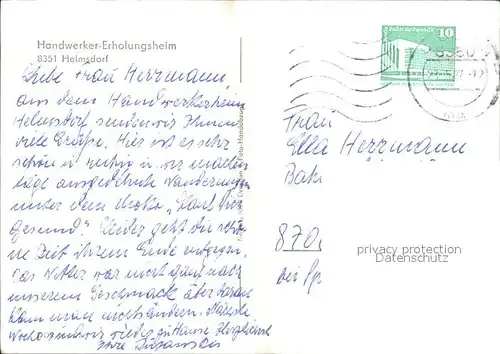 Handwerker-Erholungsheim
8351 Helmsdorf
Liebe Frau Herrmann
aus dem Handwerkerheim
Helmsdorf senden wir Ihnen
viele Grüße. Hier ist es sehr
schön u. ruhig u. wir machen
ausgedehnte Wanderungen
unter dem Motto "
Gesund." Leider geht die schö-
ne Zeit ihrem Ende entgegen.
Das Wetter war nicht ganz nach
unserem Geschmack aber daran
kann man nichts ändern. Nächste
Woche sind wir wieder zu Hause. Herzlichst
Ihre
10
Frau
Ella Herrmann
870
privacy protection
Datenschutz